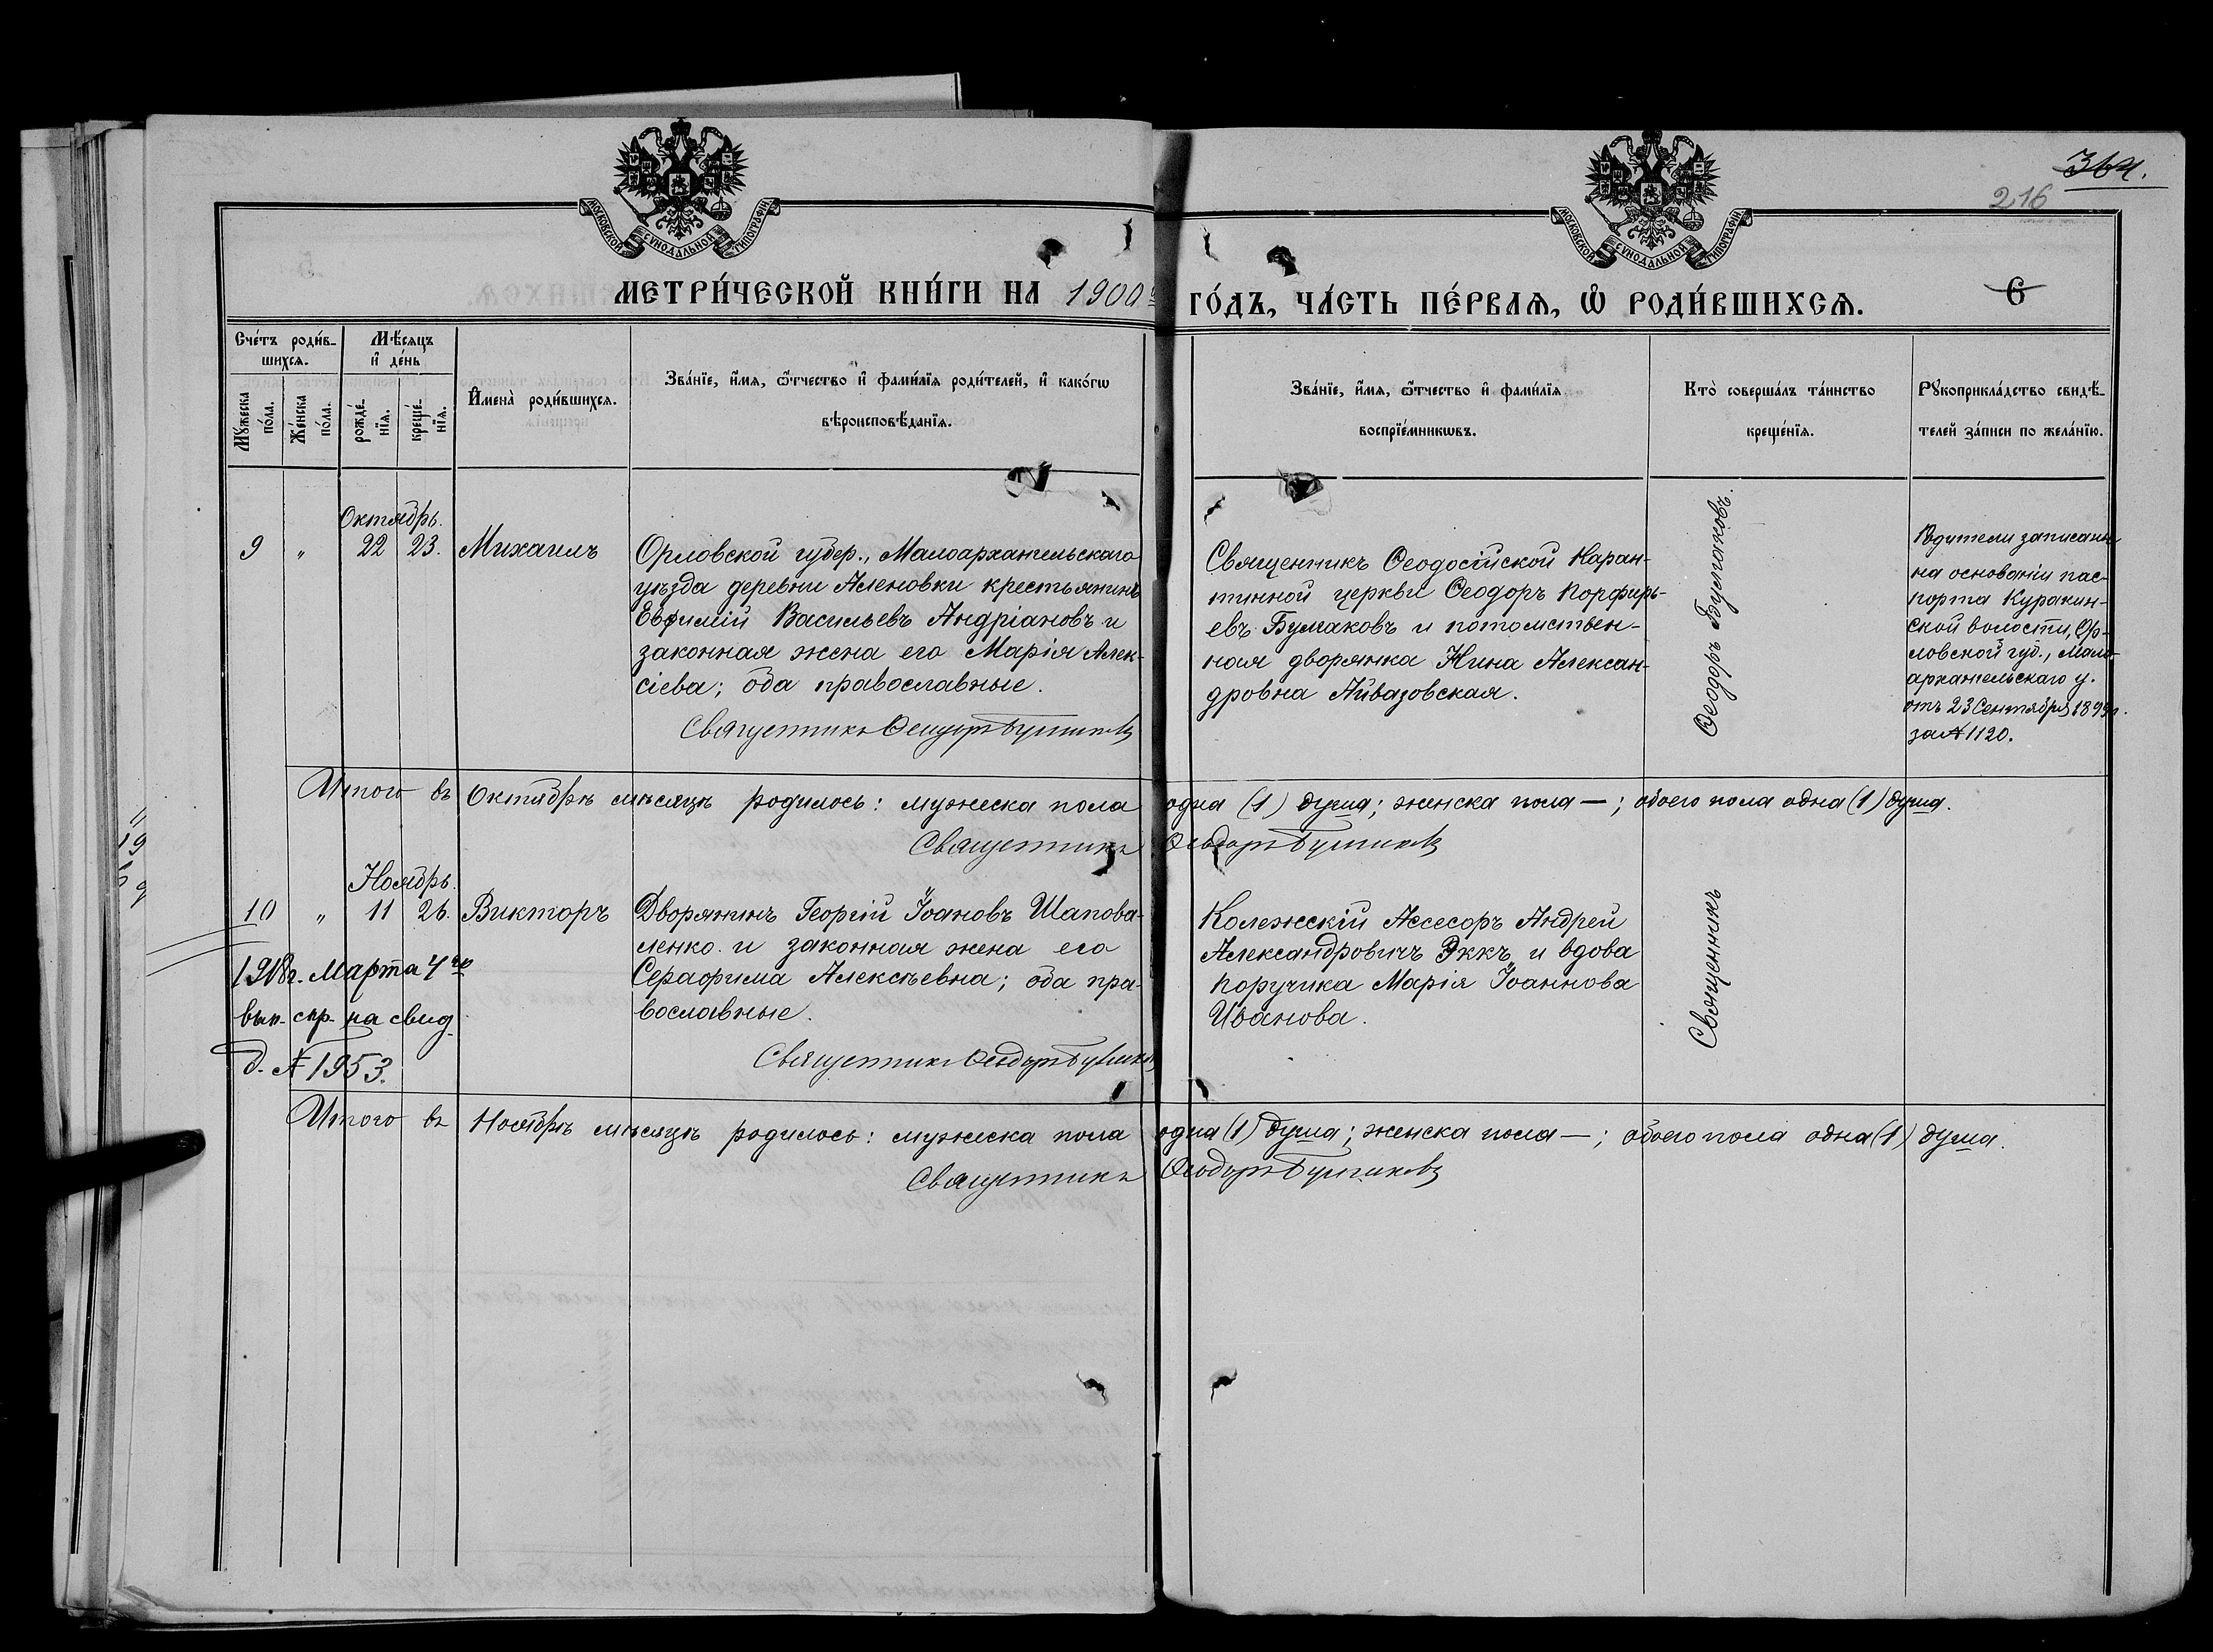 364.
216
МОСКОВСКОЙ СУНОДАЛЬНОЙ ТИПОГРАФІИ
МОСКОВСКОЙ СУНОДАЛЬНОЙ ТИПОГРАФІИ
МЕТРИ́ЧЕСКОЙ КНИ́ГИ НА 1900й ГО́ДЪ, ЧА́СТЬ ПЕ́РВАЯ, Ѡ РОДИ́ВШИХСЯ.
6
Сче́тъ роди́в-
шихся.
Мѣ́сяцъ
и де́нь
Мꙋ́жеска
по́ла.
Же́нска
по́ла.
рожде́-
нїя.
креще́-
нїя.
Имена̀ роди́вшихся.
Зва́нїе, и́мя, ѻ́тчество и фами́лїя роди́телей, и како́гѡ
вѣроисповѣ́данїя.
Зва́нїе, и́мя, ѻ́тчество и фами́лїя
воспрїе́мникѡвъ.
Кто̀ соверша́лъ та́инство
креще́нїя.
Рꙋкоприкла́дство свидѣ́-
телей за́писи по жела́нїю.
Октябрь.
9 „ 22 23. Михаилъ
Орловской губер., Малоархангельскаго
уѣзда деревни Аленовки крестьянинъ
Евфимій Васильевъ Андріановъ и
законная жена его Марія Алек-
сіева; оба православные.
Священникъ Ѳеодоръ Булгаковъ
Священникъ Ѳеодосійской Каран-
тинной церкви Ѳеодоръ Порфирь-
евъ Булгаковъ и потомствен-
ная дворянка Нина Алексан-
дровна Айвазовская.
Ѳеодоръ Булгаковъ.
Родители записаны
на основаніи пас-
порта Куракин-
ской волости, Ор-
ловской губ., Мало-
архангельскаго у.
отъ 23 Сентября 1899 г.
за № 1120.
Итого въ Октябрѣ мѣсяцѣ родилось: мужеска пола одна (1) душа; женска пола —; обоего пола одна (1) душа.
Священникъ Ѳеодоръ Булгаковъ
Ноябрь.
10 „ 11 26. Викторъ
Дворянинъ Георгій Іоановъ Шапова-
ленко и законная жена его
Серафима Алексѣевна; оба пра-
вославные.
Священникъ Ѳеодоръ Булгаковъ
1918г. Марта 4го
вып. спр. на свид.
д. № 1953.
Колежскій Ассесоръ Андрей
Александровичъ Эккъ и вдова
поручика Марія Іоаннова
Иванова.
Священникъ
Итого въ Ноябрѣ мѣсяцѣ родилось: мужеска пола одна (1) душа; женска пола —; обоего пола одна (1) душа.
Священникъ Ѳеодоръ Булгаковъ